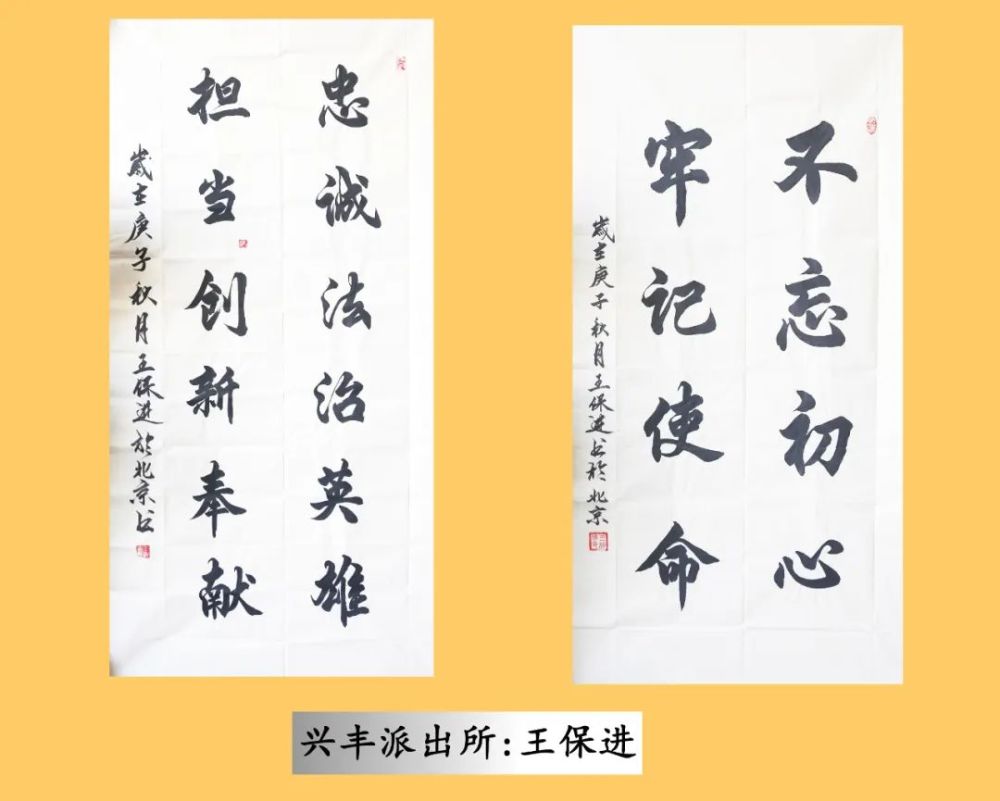 忠诚法治英雄
担当创新奉献
歲在庚子秋月王保进於北京书
不忘初心
牢记使命
歲在庚子秋月王保进书於北京
兴丰派出所:王保进